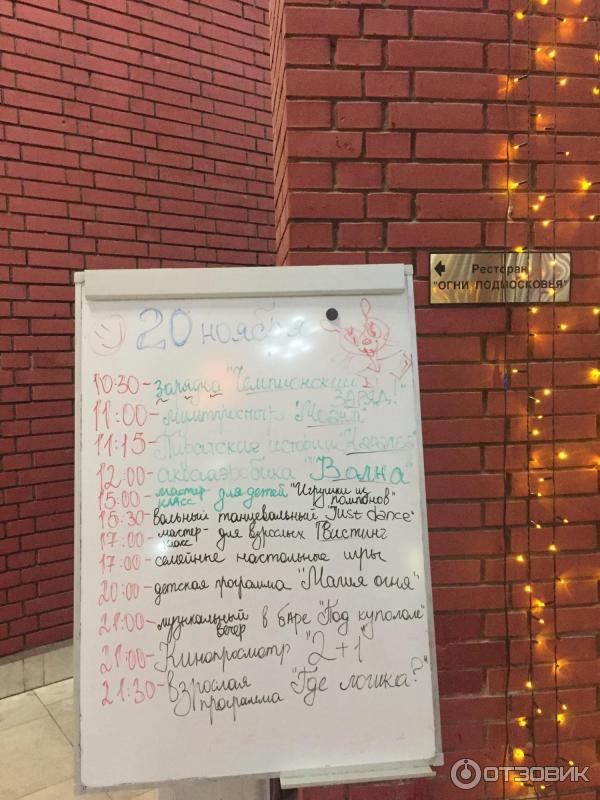 20 ноября
10:30 - зарядка "Чемпионский ЗАРЯД!"
11:00 -
11:15 - Пиратские истории
12:00 - аквааэробика "Волна"
15:00 - мастер-класс для детей "Игрушки из помпонов"
15:30 - вольный танцевальный "Just dance"
17:00 - мастер-класс для взрослых Твистинг
17:00 - семейные настольные игры
20:00 - детская программа "Магия огня"
21:00 - музыкальный вечер в баре "Под куполом"
21:00 - Кинопросмотр "2+1"
21:30 - взрослая программа "Где логика?"
Ресторан
"ОГНИ ПОДМОСКОВЬЯ"
ОТЗОВИК